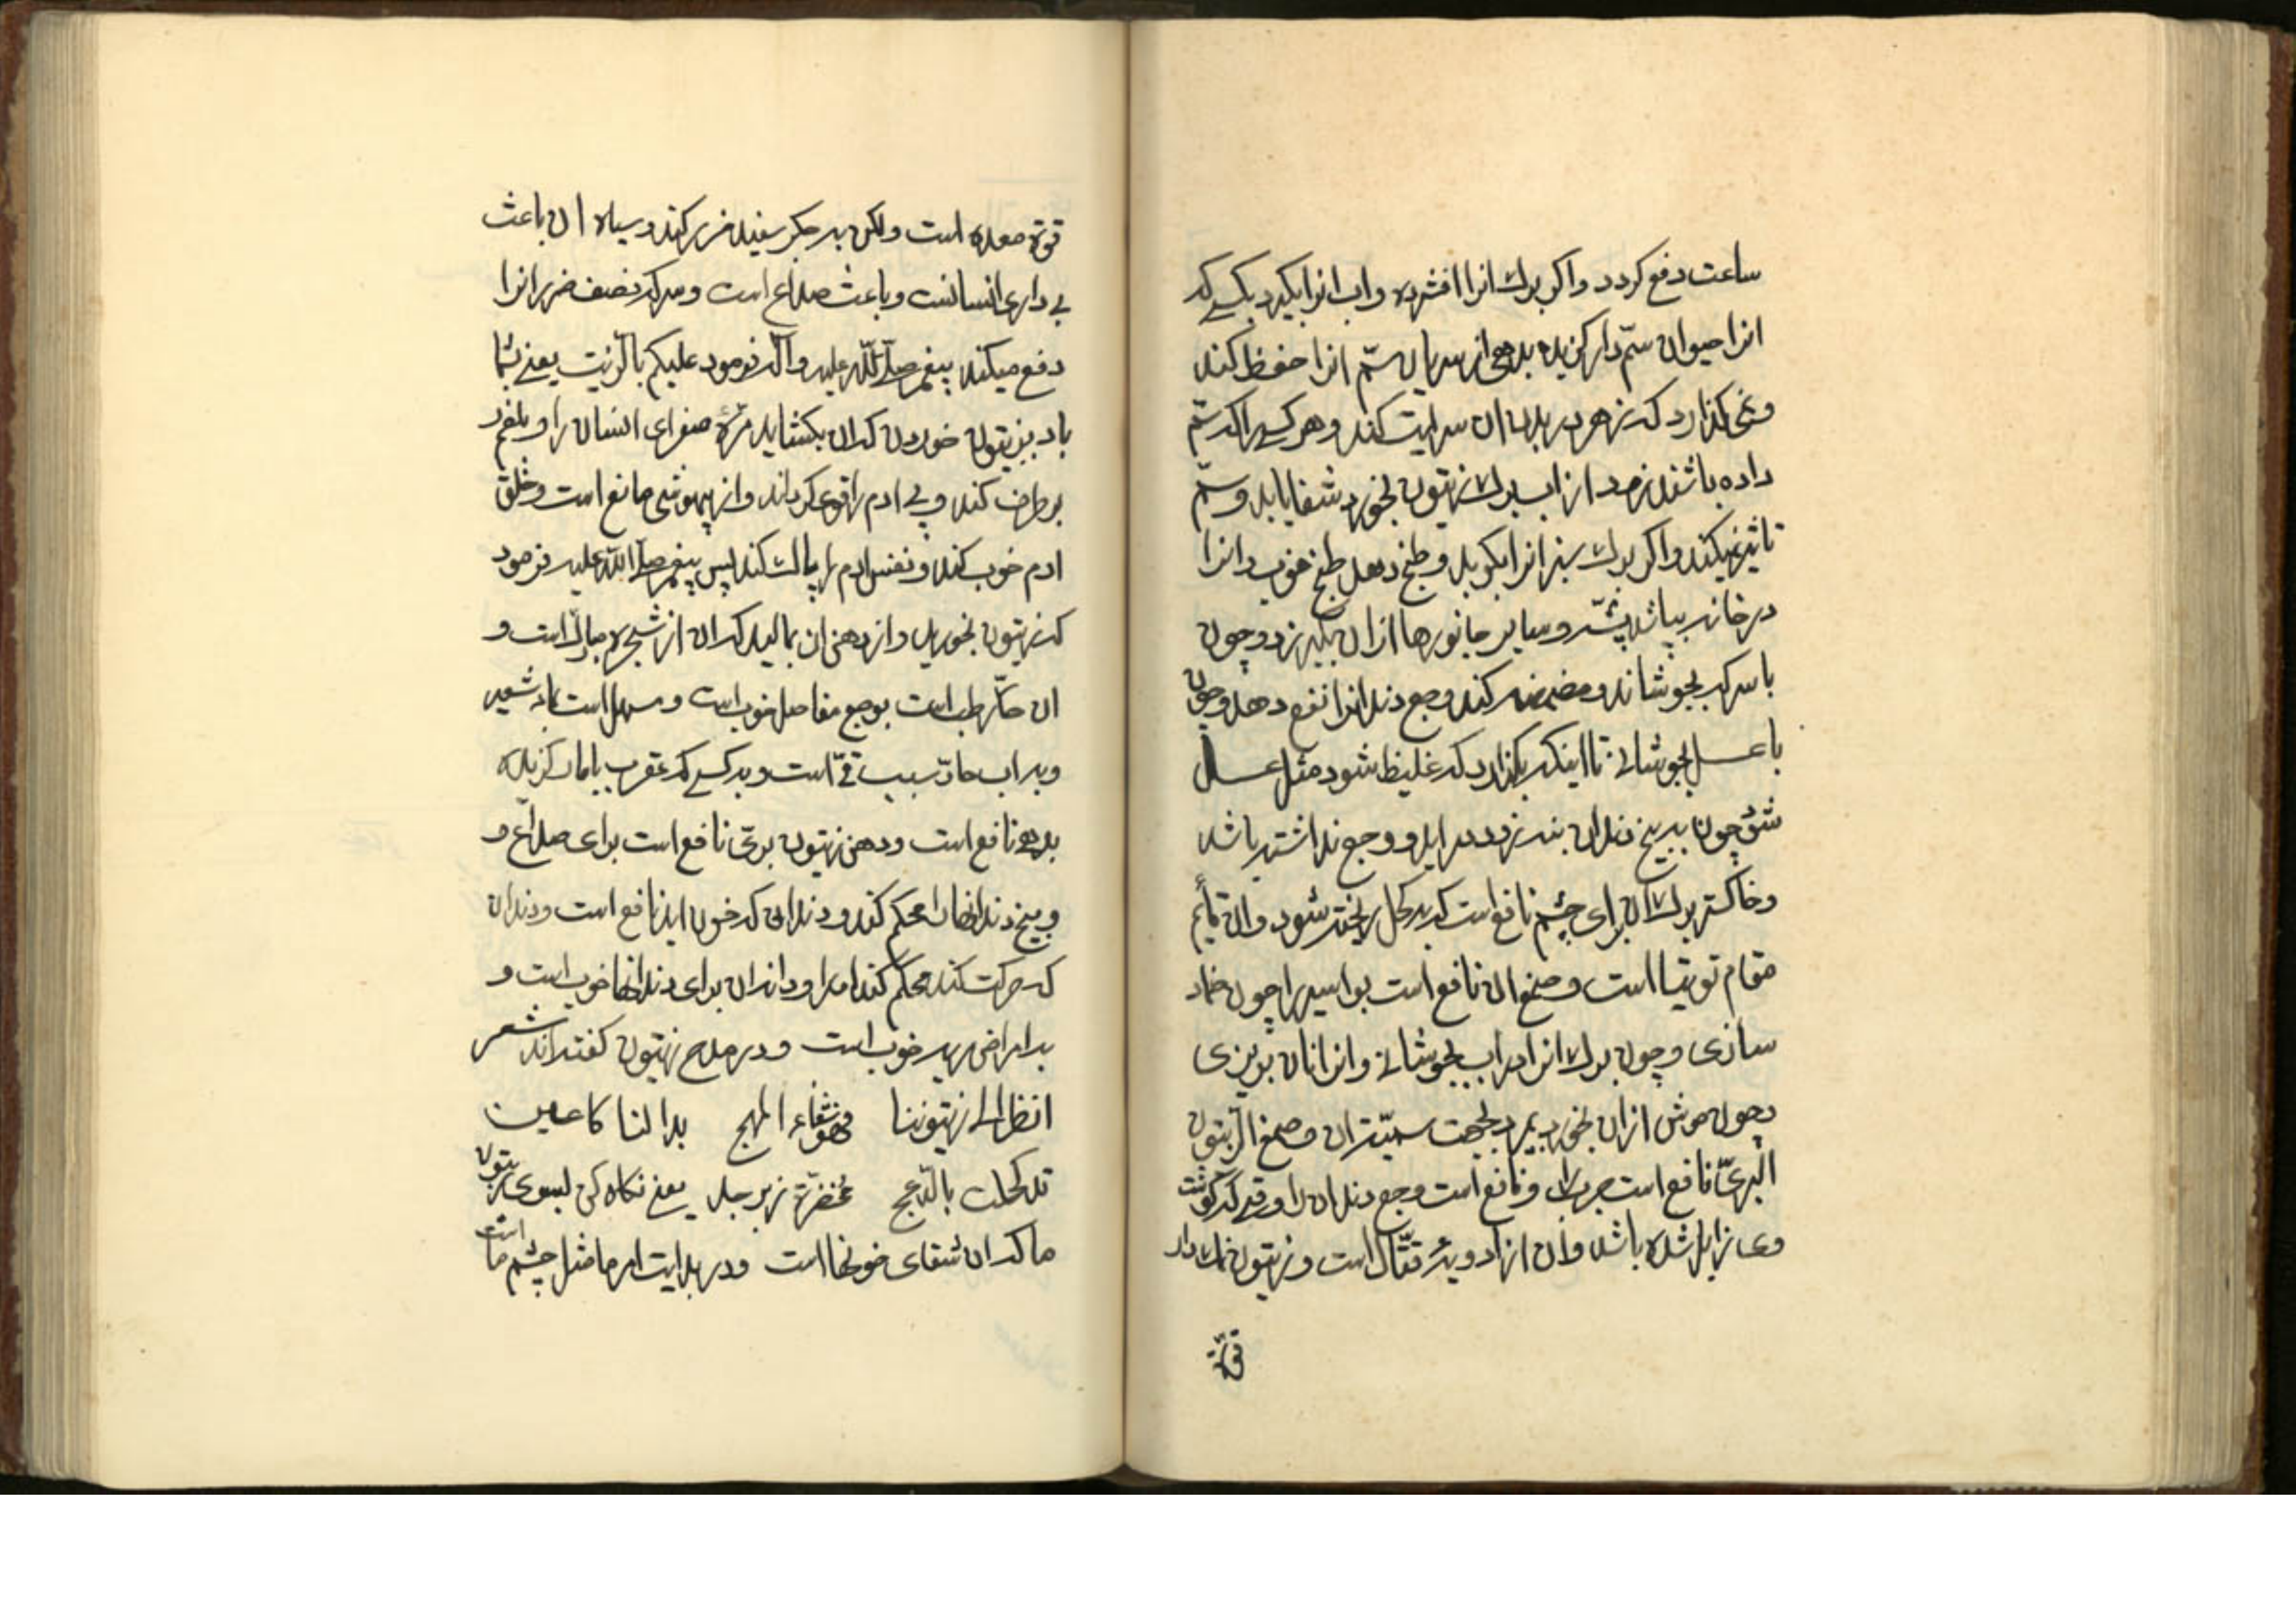 ساعت دفع کردد واکر برک انرا افشرده واب انرا بکیرد بکسے که
انرا حیوان سمّ دار کزیده بدهی از سریان سمّ انرا حفظ کند
ونمی کذارد که زهر در بدن ان سرایت کند وهر کسیرا که سمّ
داده باشند زود از اب برک زیتون بخورد شفا یابد وسمّ
تاثیر نمیکند واکر برک سبز انرا بکوبد وطبخ دهد طبخ خوب وانرا
در خانه بپاشد پشّه وسایر جانورها ازان بکریزد وچون
با سرکه بجوشاند ومضمضه کند وجع دندانرا نفع دهد وچون
با عسل بجوشانے تا اینکه بکذارد که غلیظ شود مثل عسل
شود چون به بیخ دندان بنهد زود دراید ووجع نداشته باشد
وخاکستر برک ان برای چشم نافع است که بدل کحل ریخته شود وان قایٔم
مقام توتیا است وصمغ ان نافع است بواسیر را چون ضماد
سازی وچون برک انرا در اب بجوشانے وانرا نان بریزی
وچون موش ازان بخورد بمیرد بجهت سمیّت ان وصمغ الزیتون
البرّی نافع است جرب را ونافع است وجع دندان را وقتے که کوشت
وی زایل شده باشد وان از ادویهٔ قتّال است وزیتون نمک دار
قوّة
قوّة معده است ولکن به جکر سفید ضرر کند وسیاه ان باعث
بے داری انسانست وباعث صداع است وسرکه نصف ضرر انرا
دفع میکند پیغمبر صلّے اللّه علیه وآله فرمود علیکم بالزیت یعنے بشما
باد بزیتون خوردن که ان بکشاید مرّهٔ صفرای انسان را وبلغم
برطرف کند وپے ادم را قوی کرداند واز بیهوشی مانع است وخلق
ادم خوب کند ونفس ادم را پاک کند پس پیغمبر صلّے اللّه علیه فرمود
که زیتون بخورید واز دهن ان بمالید که ان از شجرهٔ مبارک است و
ان حارّ رطب است بوجع مفاصل خوب است ومسهل است بماء شعیر
وبه اب حارّ سبب قے است وبه کسے که عقرب یا مار کزیده
بدهے نافع است ودهن زیتون برّی نافع است برای صداع و
وبیخ دندانها را محکم کند ودندانی که خون اید نافع است ودندان
که حرکت کند محکم کند اورا وداندان برای دندانها خوب است و
به امراض ریه خوب است ودر مدح زیتون کفته اند شعر
انظر الے زیتوننا فهو شفاء المهج بدا لنا کاعین
قد کحلت بالدّعج مخضرّة زبرجد یعنے نکاه کن بسوی زیتون
ما که ان شفای خونها است ودر بدایت امر ما مثل چشم ما است